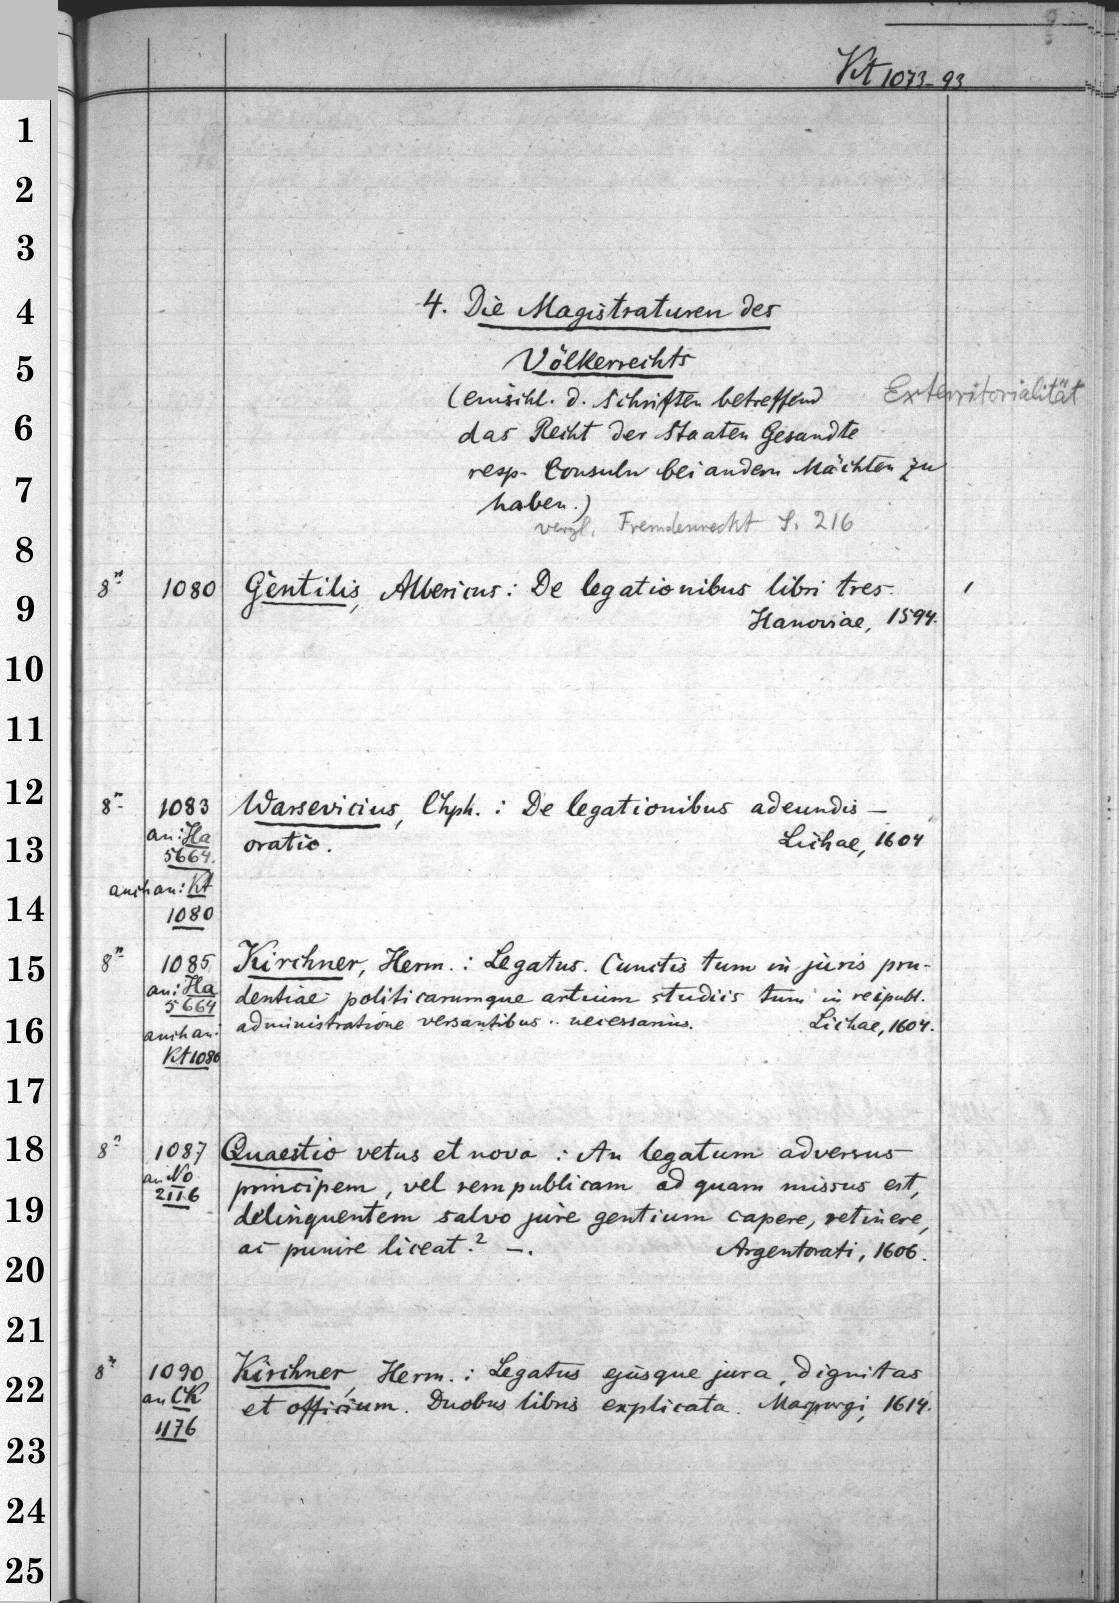 Kt 1073-93
1
2
3
4
4. Die Magistraturen des
5
Völkerrechts
(einschl. d. Schriften betreffend
Exterritorialität
6
das Recht der Staaten Gesandte
7
resp. Consuln bei andern Mächten zu
haben.)
vergl. Fremdenrecht S. 216
8
8° 1080 Gentilis, Albericus: De legationibus libri tres.
9
Hanoviae, 1594.
10
11
12
8° 1083 Warsevicius, Chph.: De legationibus adeundis —
an: Ha oratio. Lichae, 1604
13
5664.
auch an: Kt
14
1080
15
8° 1085 Kirchner, Herm.: Legatus. Cunctis tum in juris pru-
an: Ha dentiae politicarumque artium studiis tum in reipubl.
5664
16
administratione versantibus .. necessarius. Lichae, 1604.
auch an:
Kt 1080
17
18
8° 1087 Quaestio vetus et nova: An legatum adversus
an No principem, vel rempublicam ad quam missus est,
2116
19
delinquentem salvo jure gentium capere, retinere,
ac punire liceat? —. Argentorati, 1606.
20
21
22
8° 1090 Kirchner, Herm.: Legatus ejusque jura, dignitas
an CK et officium. Duobus libris explicata. Marpurgi, 1614.
1176
23
24
25